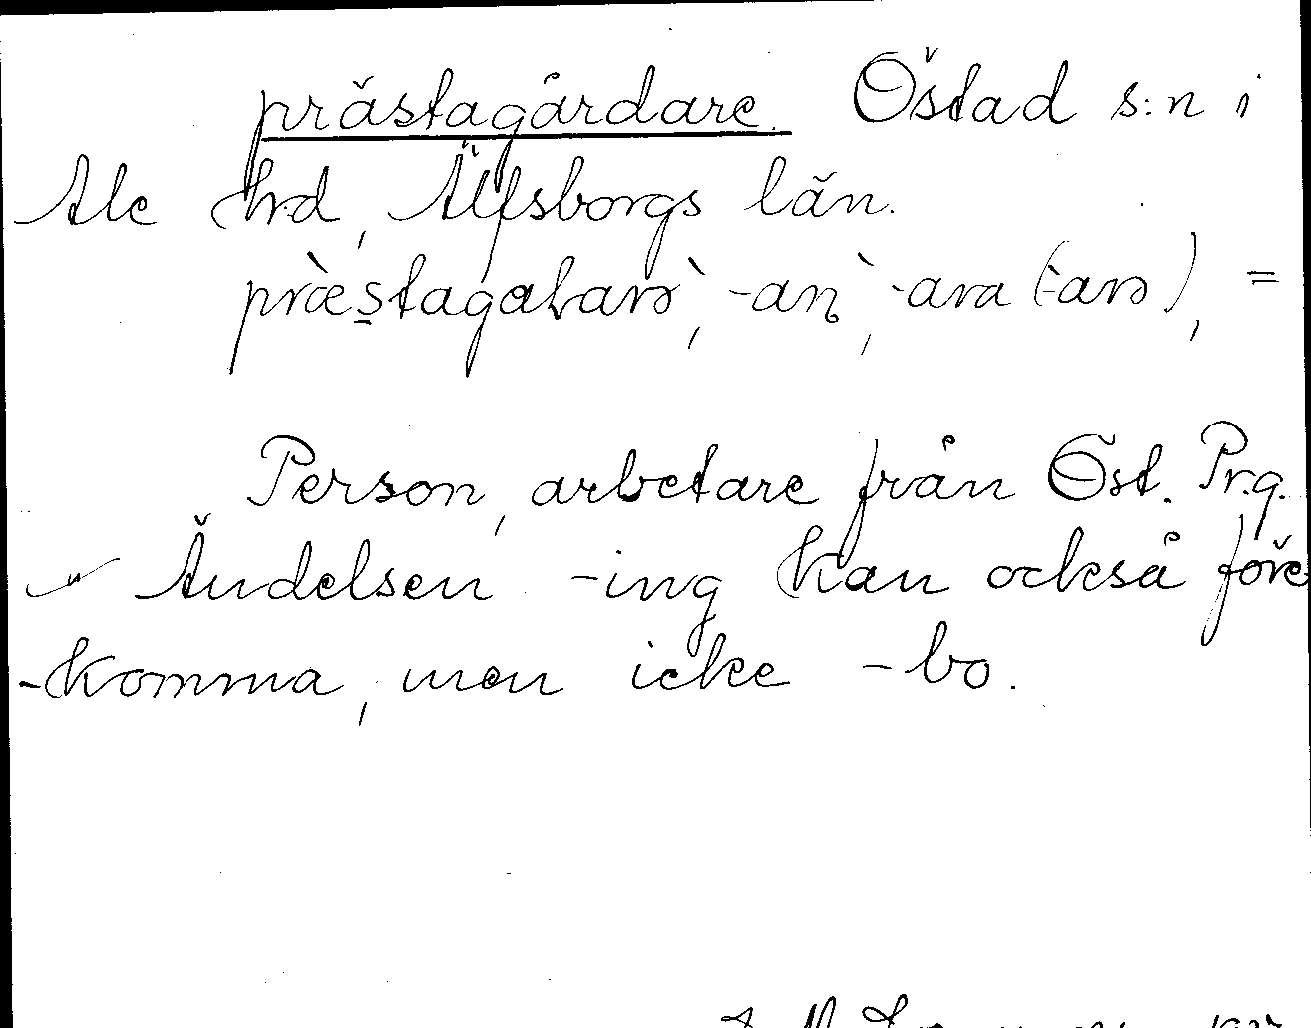 prästagårdare. Östad s:n i
Ale hrd, Älfsborgs län.
-an, -ara (-arə), =
Person, arbetare från Öst. Pr.g.
Ändelsen -ing kan också före
-komma, men icke -bo.